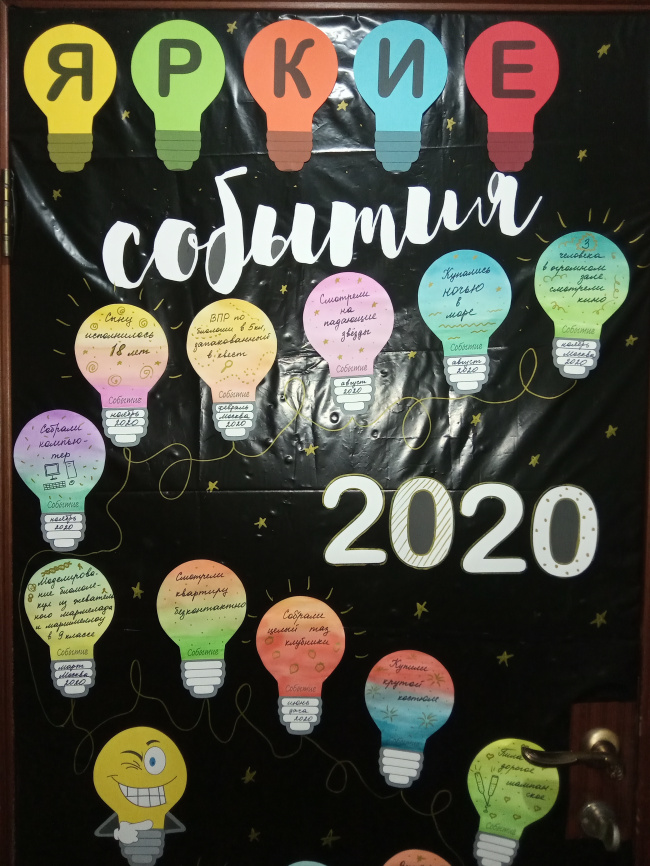 ЯРКИЕ
события
Сыну
исполнилось
18 лет
Событие
ноябрь
2020
ВПР по
биологии в 5кл,
запакованный
в квест
Событие
февраль
Москва
2020
Смотрели
на
падающие
звёзды
Событие
август
2020
Купались
ночью
в
море
Событие
август
2020
3
человека
в огромном
зале
смотрели
кино
Событие
ноябрь
Москва
2020
Собрали
компью-
тер
Событие
ноябрь
2020
2020
Моделирова-
ние биомоле-
кул из жеватель-
ного мармелада
и маршмеллоу
в 9 классе
Событие
март
Москва
2020
Смотрели
квартиру
бесконтактно
Событие
Собрали
целый таз
клубники
Событие
июнь
дача
2020
Купили
крутой
костюм
Пили
дорогое
шампан-
ское
Событие